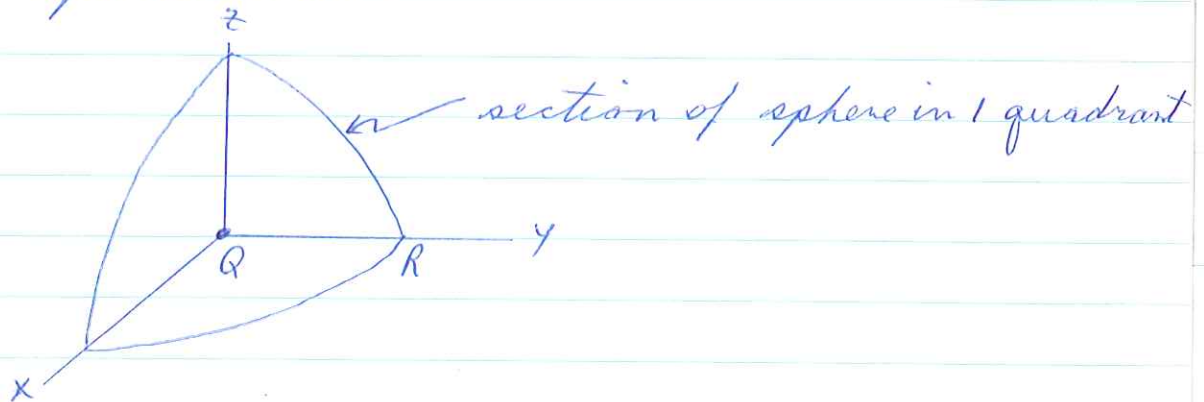 z
section of sphere in 1 quadrant
Q
R
y
x